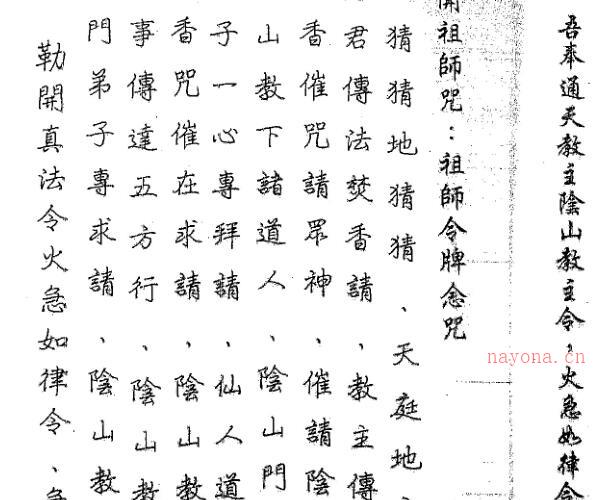 吾奉通天教主陰山教主令，火急如律令
開祖師咒：祖師令牌念咒
猜猜地猜猜、天庭地
君傳法焚香請，教主傳
香催咒請眾神、催請陰
山教下諸道人、陰山門
子一心專拜請、仙人道
香咒催在求請、陰山教
事傳達五方行、陰山教
門弟子專求請、陰山教
勒開真法令火急如律令、急
nayona.cn